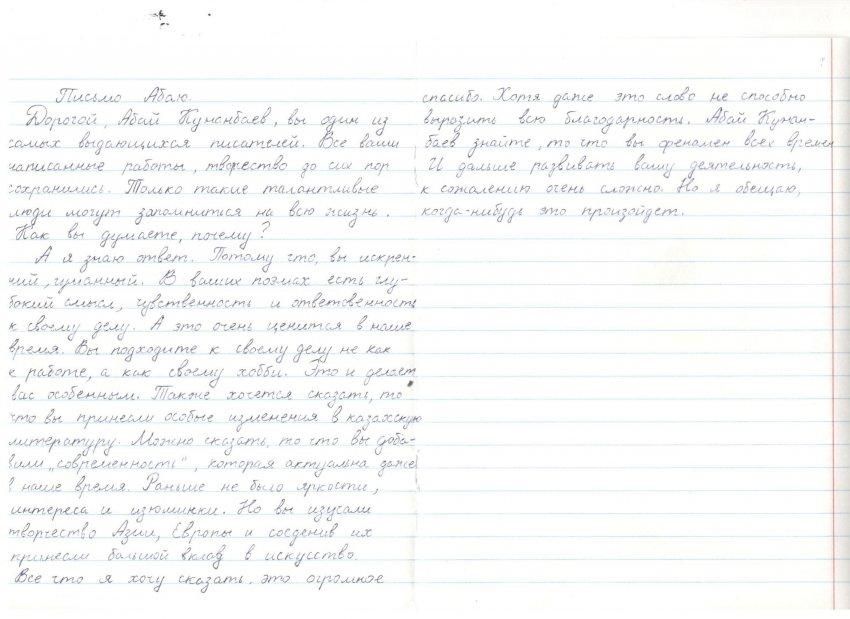 Письмо Абаю.
Дорогой, Абай Кунанбаев, вы один из
самых выдающихся писателей. Все ваши
написанные работы, творество до сих пор
сохранились. Только такие талантливые
люди могут запомнится на всю жизнь.
Как вы думаете, почему?
А я знаю ответ. Потому что, вы искрен-
ний, гуманный. В ваших поэмах есть глу-
бокий смысл, чувственность и ответсвенность
к своему делу. А это очень ценится в наше
время. Вы подходите к своему делу не как
к работе, а как своему хобби. Это и делает
вас особенным. Также хочется сказать, то
что вы принесли особые изменения в казахскую
литературу. Можно сказать, то что вы доба-
вили „современность", которая актуальна даже
в наше время. Раньше не было яркости,
интереса и изюминки. Но вы изусали
творчество Азии, Европы и сосденив их
принесли большой вклад в искусство.
Все что я хочу сказать, это огромное
спасибо. Хотя даже это слово не способно
выразить всю благодарность. Абай Кунан-
баев знайте, то что вы феномен всех времен
И дальше развивать вашу деятельность,
к сожалению очень сложно. Но я обещаю,
когда-нибудь это произойдет.